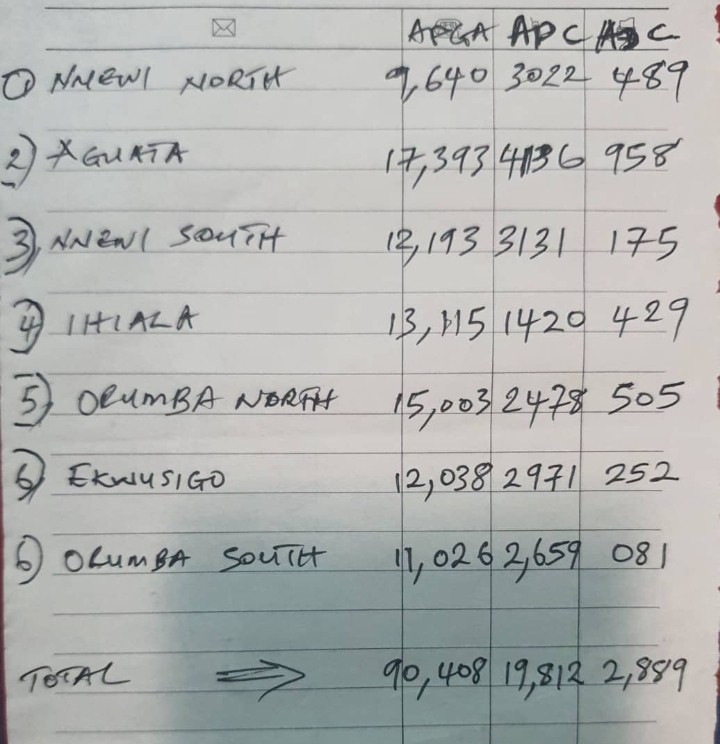 APGA APC ADC
1) NNEWI NORTH 9,640 3022 489
2) AGUATA 17,393 4136 958
3) NNEWI SOUTH 12,193 3131 175
4) IHIALA 13,115 1420 429
5) ORUMBA NORTH 15,003 2478 505
6) EKWUSIGO 12,038 2971 252
6) ORUMBA SOUTH 11,026 2,659 081
TOTAL ⇒ 90,408 19,812 2,889